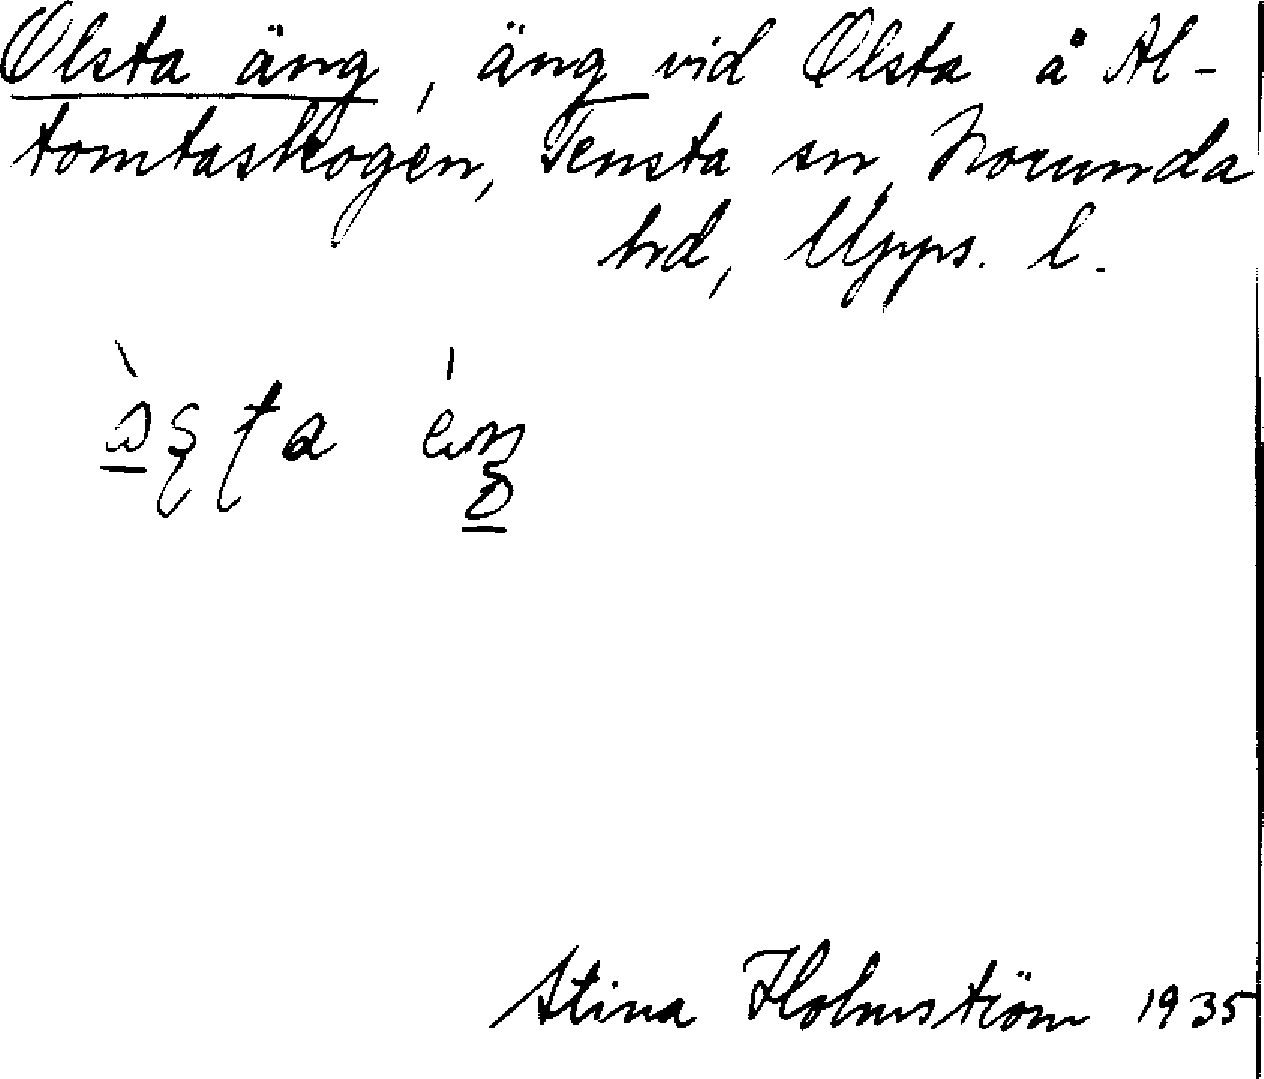 Olsta äng, äng vid Olsta å Al-
tomtaskogen, Tensta sn, Norunda
hd, Upps. l.
Stina Holmström 1935